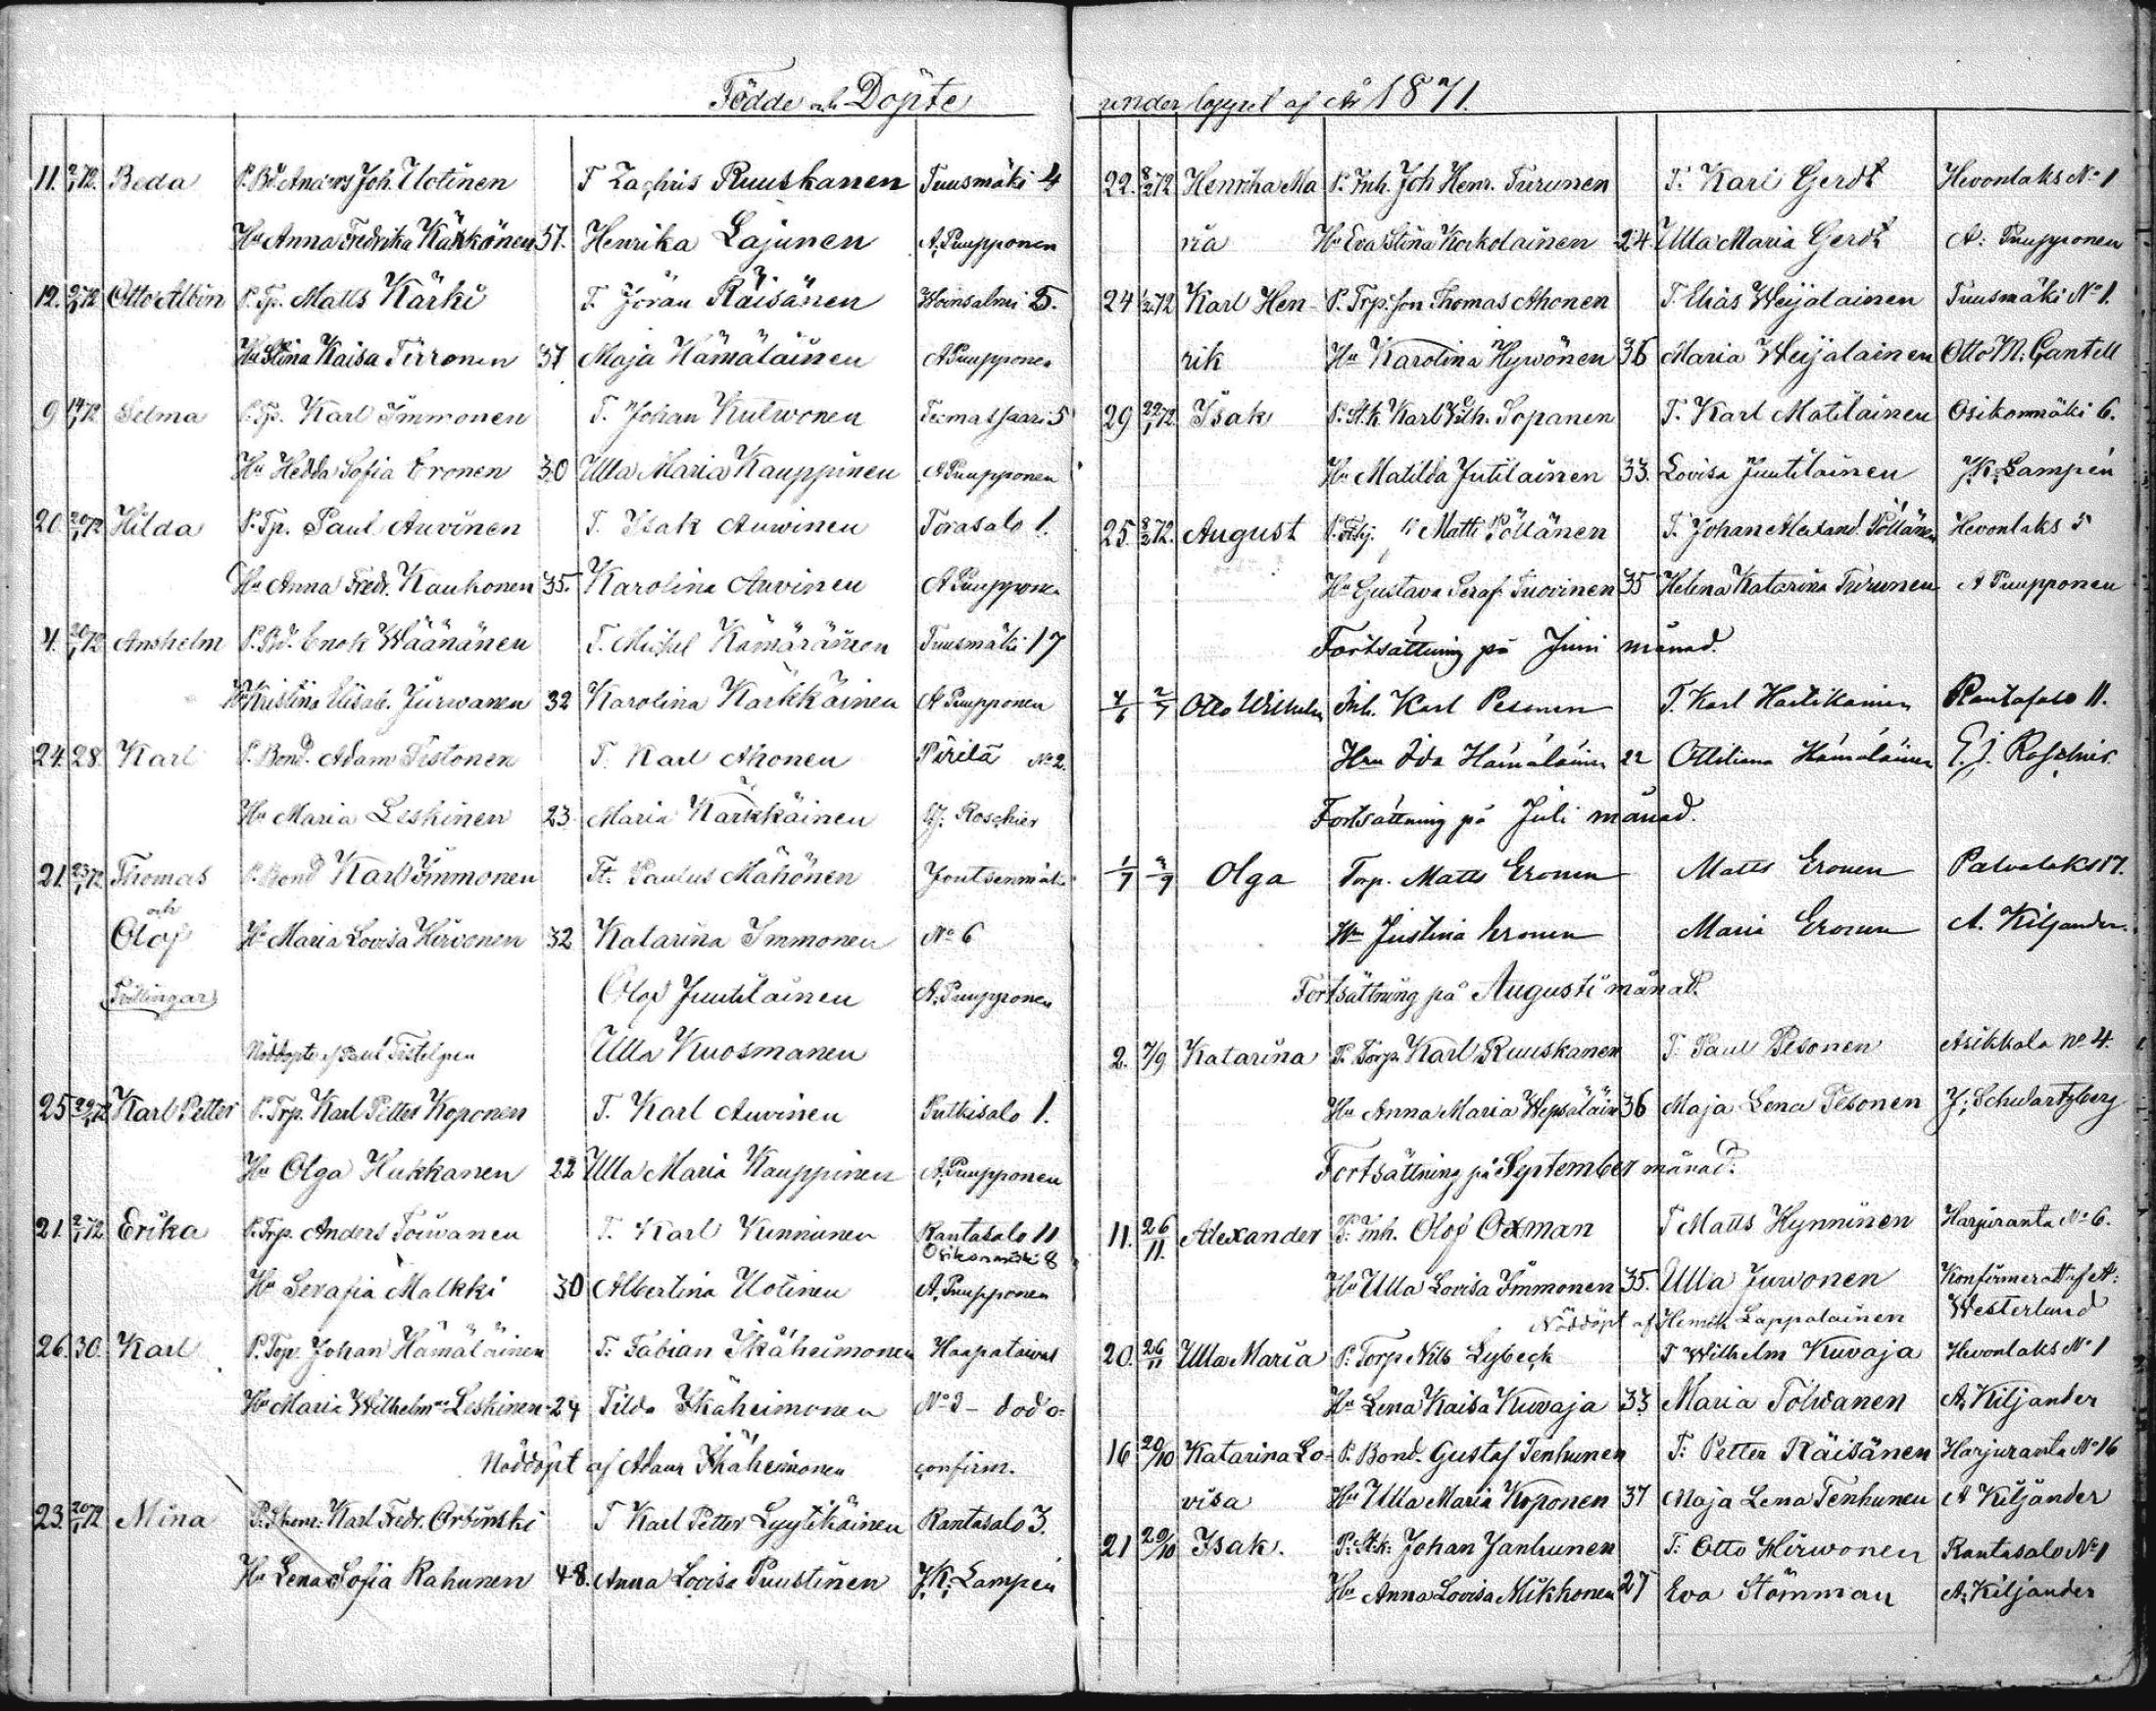 Födde och Döpte
11. 9/1 72. Beda P. Bd. Anders Joh. Uotinen T Zachris Ruuskanen Tuusmäki 4
Hu Anna Fredrika Karkönen 37. Henrika Lajunen A. Puupponen
12. 2/1 72 Otto Albin P. Tp. Matts Kärki T. Jöran Räisänen Woinsalmi 5.
Hu Stina Kaisa Tirronen 37 Maja Hämäläinen A Puupponen
9 14/1 72. Selma P. Tp. Karl Immonen T. Johan Kulwonen Teemassaari 5
Hu Hedda Sofia Eronen 30 Ulla Maria Kauppinen A Puupponen
20. 20/1 72 Hilda P. Tp. Paul Auvinen T. Isak Auwinen Torasalo 1.
Hu Anna Fredr. Kauhonen 35. Karolina Auvinen A Puupponen
4. 20/1 72 Anshelm P. Bd. Enok Wäänänen T. Michel Kämäräinen Tuusmäki 17
Hu Kristina Elisab. Jurwanen 32 Karolina Karkkäinen A Puupponen
24. 28. Karl P. Bond. Adam Tistonen T. Karl Ahonen Pirilä No 2.
Hu Maria Leskinen 23 Maria Karkkäinen Roschier
21. 23/1 72 Thomas P. Bond Karl Immonen Ft. Paulus Mähönen Jontsenmäki
och
Olof Hu Maria Lovisa Hirvonen 32 Katarina Immonen No 6
Tvillingar Olof Juutilainen A. Puupponen
Nöddöpte af Paul Ulla Kuosmanen
25 22/1 72 Karl Petter P. Trp. Karl Petter Koponen T. Karl Auvinen Putkisalo 1.
Hu Olga Hukkanen 22 Ulla Maria Kauppinen A. Puupponen
21. 2/1 72 Erika P. Trp. Anders Toiwanen T. Karl Kinnunen Rantasalo 11
Osikonmäki 8
Hu Serafia Malkki 30 Albertina Uotinen A. Puupponen
26. 30. Karl P. Torp. Johan Hämäläinen T. Fabian Ikäheimonen Haapataival
Hu Maria Wilhelm. Leskinen 24 Tilda Ikäheimonen No 3 - dod o:
Nöddöpt af Adam Ikäheimonen confirm.
23. 20/1 72 Mina Karl Fredr. Orbinski T Karl Petter Lyytikäinen Rantasalo 3.
Hu Lena Sofia Rahunen 48. Anna Lovisa Puustinen J. K. Lampén
under loppet af År 1871.
22. 8/2 72 Henrika Ma P. Inh. Joh Henr. Turunen T. Karl Gerdt Hevonlaks No 1
ria Hu Eva Stina Korkolainen 24. Ulla Maria Gerdt A: Puupponen
24 1/2 72 Karl Hen- P. Trp. son Thomas Ahonen T. Elias Weijalainen Tuusmäki No 1.
rik Hu Karolina Hyvönen 36 Maria Weijalainen Otto M. Gantell
29 22/1 72. Isak P. St.k. Karl Vilh. Sopanen T. Karl Matilainen Osikonmäki 6.
Hu Matilda Jutilainen 33. Lovisa Juutilainen J. K. Lampén
25. 8/2 72. August Matti Pöllänen T. Johan Alexand. Pöllänen Hevonlaks 5
Hu Gustava Seraf. Tuovinen 35 Helena Katarina Turunen A Puupponen
Fortsättning på Juni månad.
4/6 2/7 Otto Wilhelm Inh. Karl Pesonen T. Karl Hartikainen Rantasalo 11.
Hu Ida Hämäläinen 22 Ottiliana Hämäläinen E. J. Roschier.
Fortsättning på Juli månad.
1/7 Olga Torp. Matts Eronen Matts Eronen Palvalaks 17.
Hu Justina Eronen Maria Eronen A. Kiljander.
Fortsättning på Augusti månad.
2. 7/9 Katarina P. Torp. Karl Ruuskanen T. Paul Pesonen Asikkala No 4.
Hu Anna Maria Wepsäläin 36 Maja Lena Pesonen J. Schwartzberg
Fortsättning på September månad.
11. 26/11. Alexander P. Inh. Olof Oxman T Matts Hynninen Harjuranta No 6.
Hu Ulla Lovisa Immonen 35. Ulla Juvonen Konfirmerat af A:
Nöddöpt af Henrik Lappalainen Westerlund
20. 26/11 Ulla Maria P. Torp Nils Lybeck T Wilhelm Kuvaja Hevonlaks No 1
Hu Lena Kaisa Kuvaja 33 Maria Tolvanen A. Kiljander
16 20/10 Katarina Lo- P. Bond. Gustaf Tenhunen T: Petter Räisänen Harjuranta No 16
visa Hu Ulla Maria Koponen 37 Maja Lena Tenhunen A Kiljander
21 20/10 Isak. P. St.k: Johan Janhunen T: Otto Hirwonen Rantasalo No 1
Hu Anna Lovisa Mikkonen 27 Eva Stömman A. Kiljander